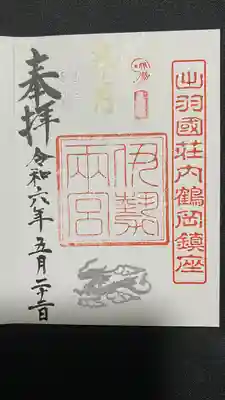 出羽國荘内鶴岡鎮座
伊勢
兩宮
奉拝
令和六年五月二十二日